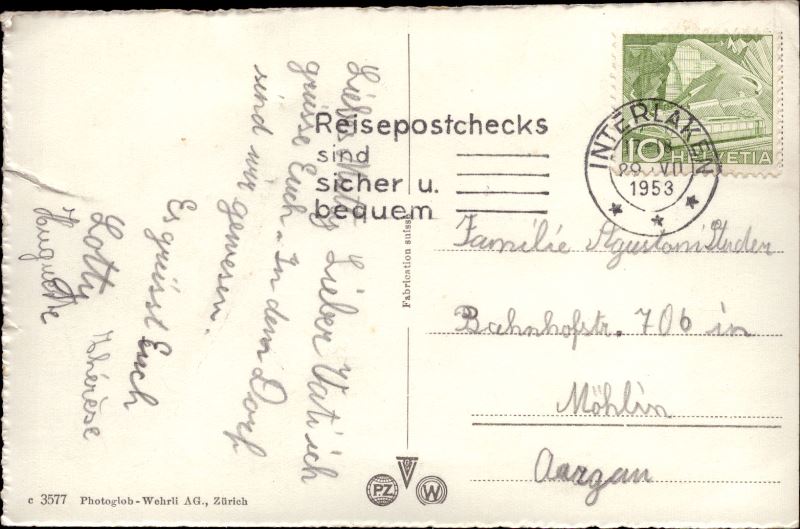 Liebes Mutti, Lieber Vati ich
grüsse Euch. In dem Dorf
sind wir gewesen.
Es grüsst Euch
Lotty Thérèse
Huguette
Reisepostchecks
sind
sicher u.
bequem
INTERLAKEN
29. VII
1953
10 HELVETIA
Fabrication suisse
Familie Agustoni Studer
Bahnhofstr. 706 in
Möhlin
Aargau
c 3577 Photoglob-Wehrli AG., Zürich
PZ
W